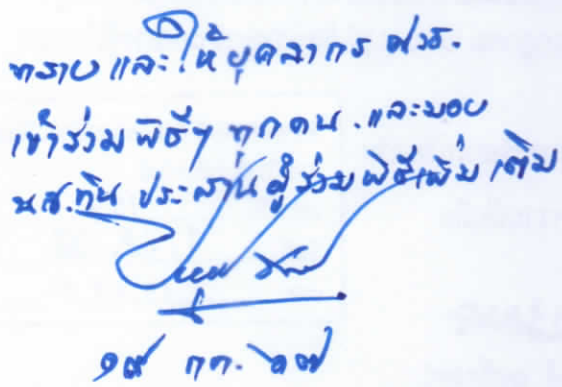 ทราบ และให้บุคลากร ศวธ.
เข้าร่วมพิธีฯ ทุกคน. และมอบ
นส.ทิน ประสานผู้ร่วมพิธีเพิ่มเติม
๑๙ กค. ๖๗